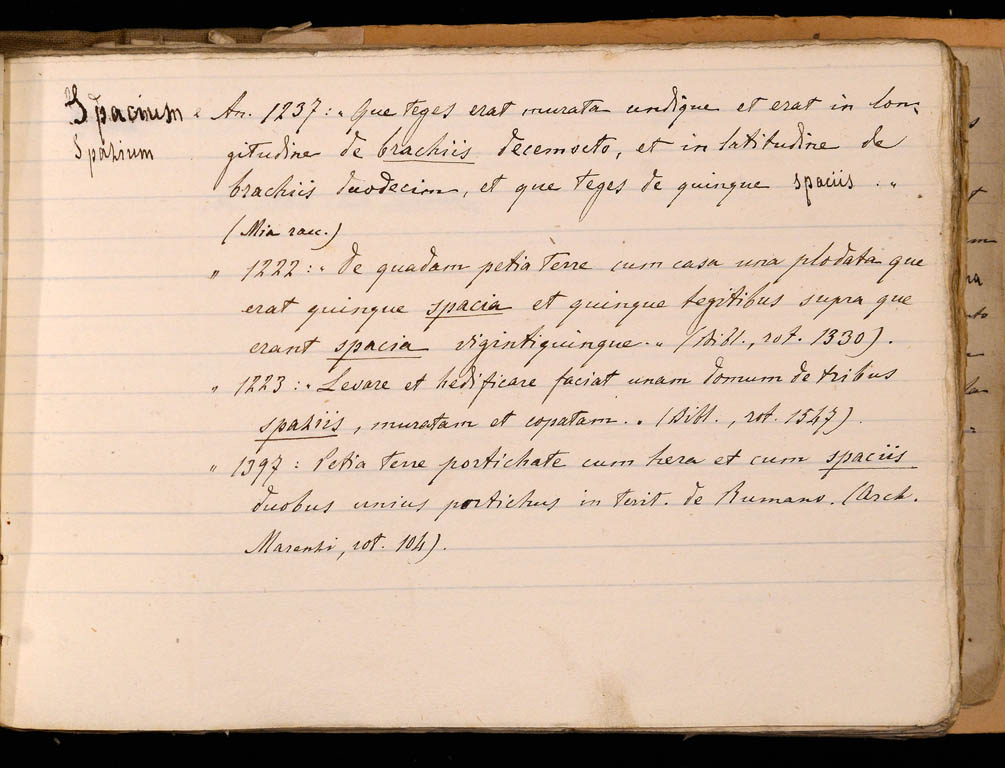 Spacium „ An. 1237: „ Que teges erat murata undique et erat in lon-
Spazium gitudine de brachiis decemocto, et in latitudine de
brachiis duodecim, et que teges de quinque spaciis. „
(Mia racc.)
„ 1222: „ De quadam petia terre cum casa una plodata que
erat quinque spacia et quinque tegetibus supra que
erant spacia vigintiquinque. „ (Bibl., rot. 1330).
„ 1223: „ Levare et hedificare faciat unam domum de tribus
spaziis, muratam et copatam. „ (Bibl., rot. 1547).
„ 1397: Petia terre portichate cum hera et cum spaciis
duobus unius portichus in territ. de Rumano. (Arch.
Marenzi, rot. 104).